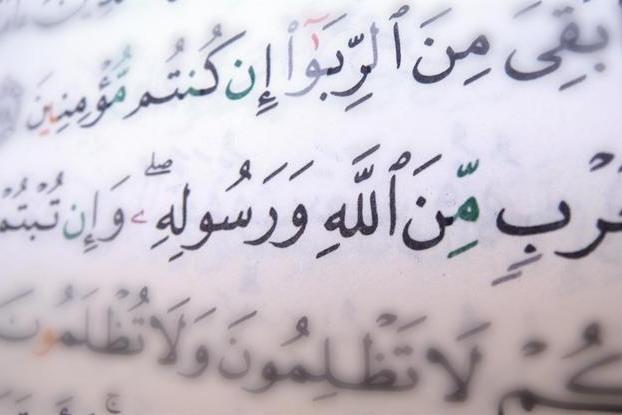 بَقِىَ مِنَ ٱلرِّبَوٰٓا۟ إِن كُنتُم مُّؤْمِنِينَ
مِّنَ ٱللَّهِ وَرَسُولِهِۦ ۖ وَإِن تُبْتُمْ
كُمْ لَا تَظْلِمُونَ وَلَا تُظْلَمُونَ